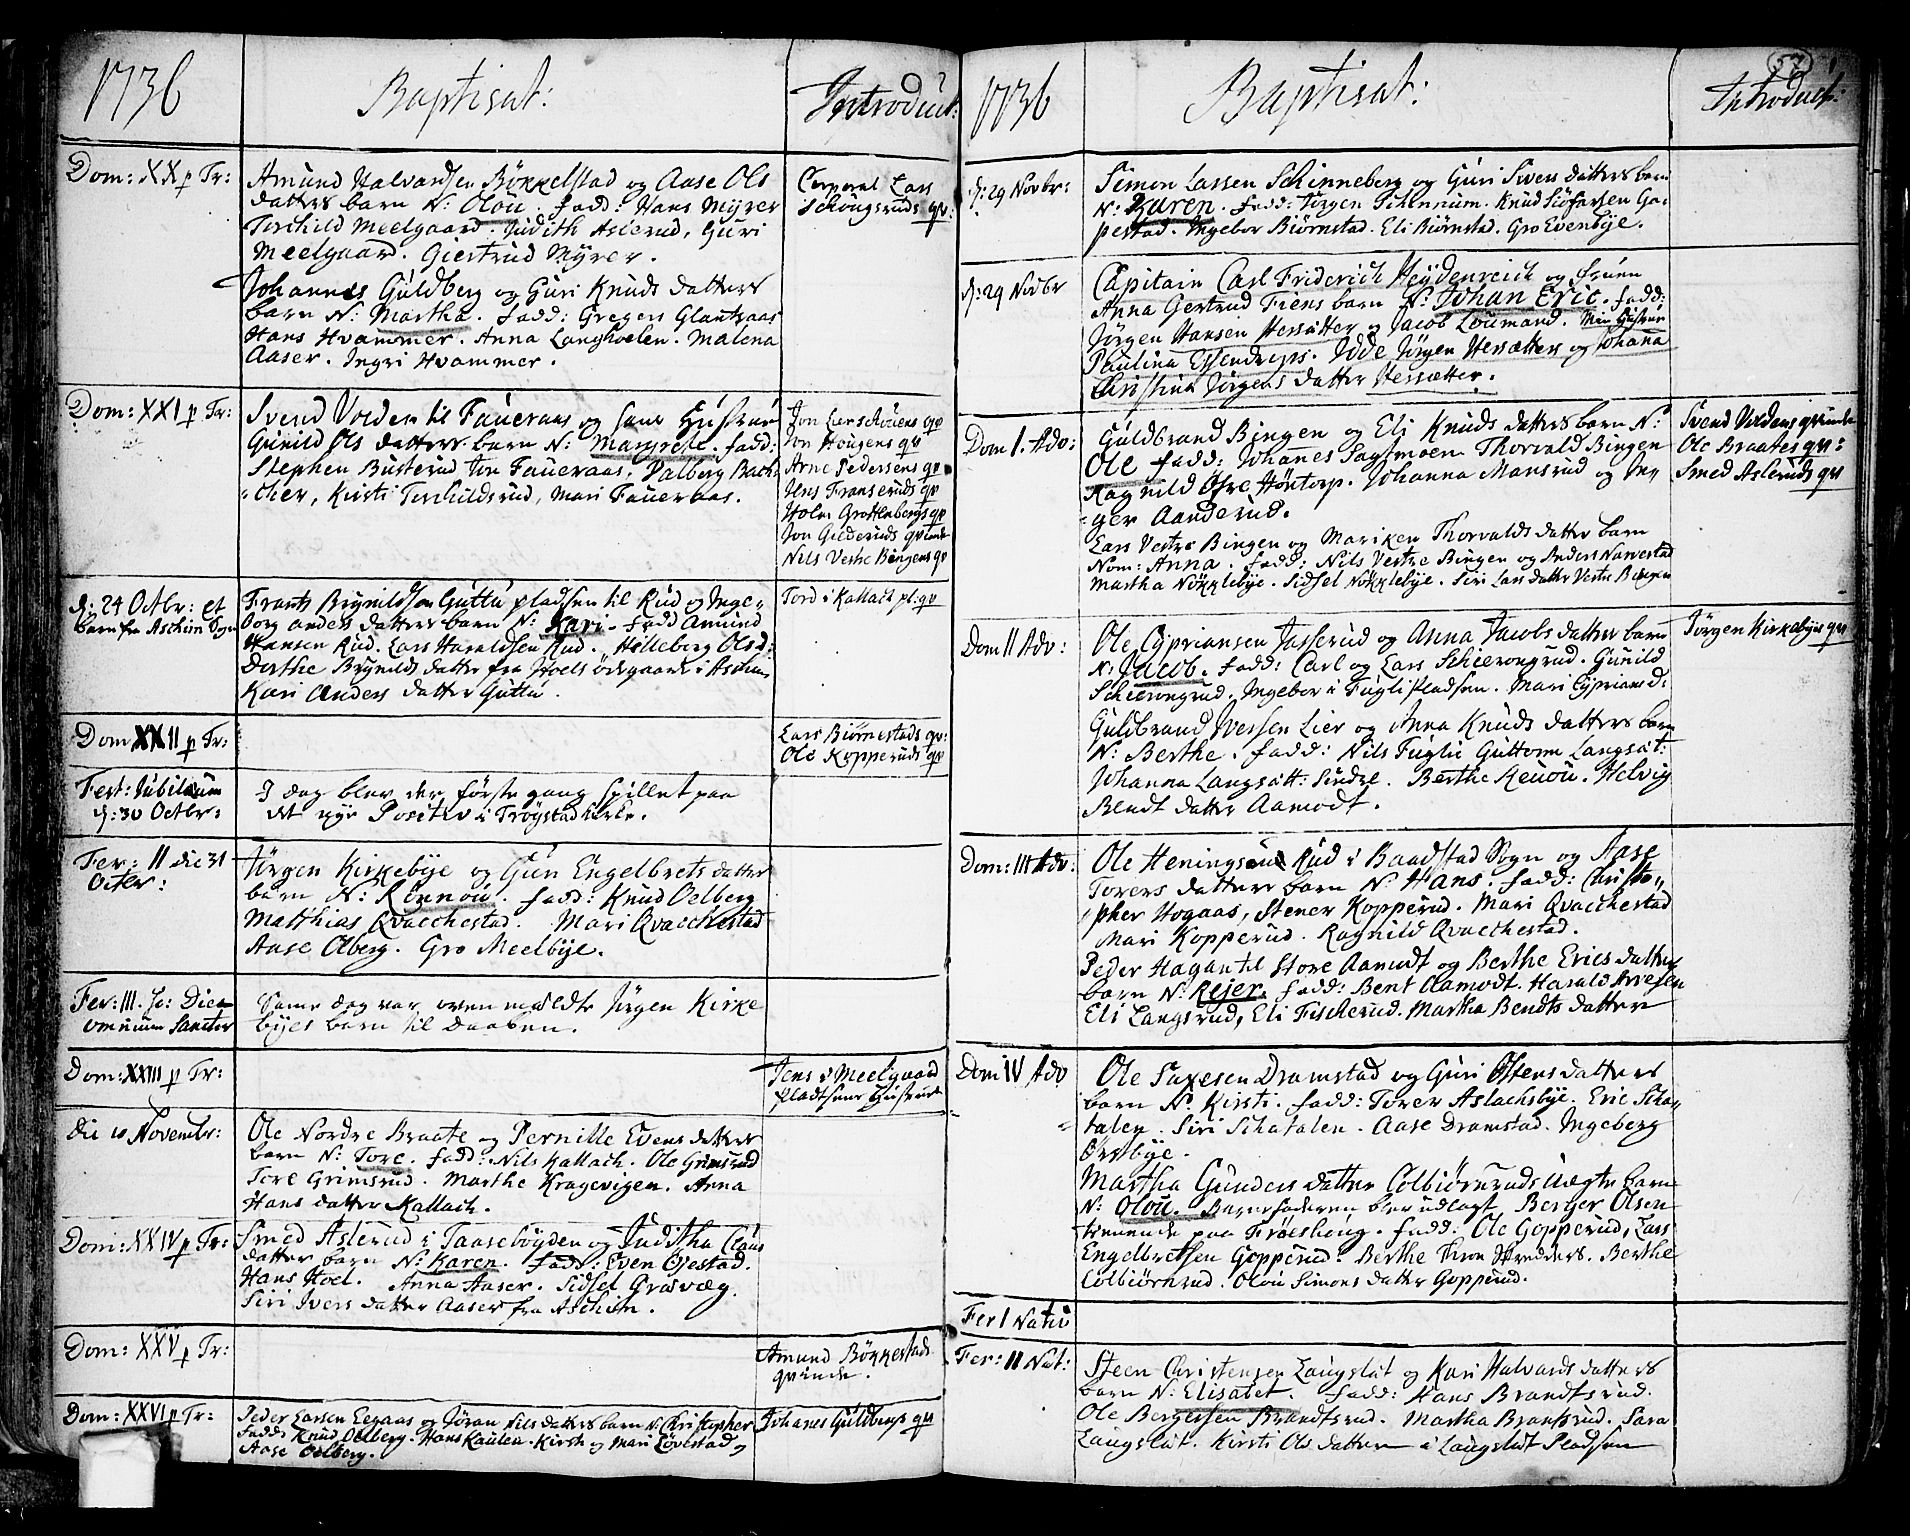 1736
Baptisat:
Introduct:
Dom: XX p Tr:
Amund Halvardsen Bökkelstad og Aase Ols
datters barn N: Olou. fadd: Hans Myrer
Terchild Meelgaard. Judith Aslerud, Guri
Meelgaard. Giertrud Myrer.
Corporal Lars
Schougsruds qv:
Johannes Guldberg og Guri Knuds datters
barn N: Martha. fadd: Gregers Glantzaas
Hans Hvammer. Anna Langhoelen. Malena
Aaser. Ingri Hvammer.
Dom: XXI p Tr:
Svend Volden til Faueraas og hans Hustrue
Gunild Ols datters barn N: Margrete. fadd:
Stephen Busterud Jon Faueraas. Palberg Bach
cher, Kirsti Terchildsrud, Mari Faueraas.
Jon Larschouens qv
Jon Hougens qv
Arne Pedersens qv
Jens Franseruds qv
Holm Grottenbergs qv
Jon Gilderuds qvinde
Nils Vestre Bingens qv
d: 24 Octbr: et
barn fra Aschim Sogn
Frants Brynildsøn Guttu pladsen til Rud og Inge
borg Anders datters barn N: Kari. fadd Amund
Hansen Rud. Lars Haraldsen Rud. Helleborg Olsd:
Dorthe Brynilds datter fra Joels ödegaard i Aschim
Kari Anders datter Guttu.
Tord i Kallach pl: qv
Dom XXII p Tr:
Lars Biörnestads qv:
Ole Kopperuds qv
Fest: Jubilæum
d: 30 Octbr:
I dag blev der förste gang spillet paa
det nye Positiv i Tröystad kirke.
Fer: II die 31
Octbr:
Jörgen Kirkebye og Guri Engelbrets datter
barn N: Rönnou. fadd: Knud Oelberg
Matthias Qvacchestad. Mari Qvacchestad
Aase Olberg. Gro Meelbye.
Fer: III. p: Die
omnium Sanctor
Same dag var oven meldte Jörgen Kirke
byes barn til Daaben.
Dom: XXIII p Tr:
Jens i Meelgaard
pladsens Hustrue
die 10 Novembr:
Ole Nordre Braate og Pernille Evens datters
barn N: Tore. fadd: Nils Kallach. Ole Grimsrud
Tore Grimsrud. Marthe Kragevigen. Anna
Hans datter Kallach.
Dom: XXIV p Tr:
Smed Aslerud i Taaseböyden og Juditha Claus
datter barn N: Karen. fadd: Even Öjestad.
Hans Hoel. Anna Aaser. Sidsel Grosvæg.
Siri Ivers datter Aaser fra Aschim.
Dom: XXV p Tr:
Amund Bökkestads
qvinde.
Dom: XXVI p Tr:
Peder Larsen Eegaas og Jöran Nils datters barn N: Christopher
fadd: Knud Oelberg. Hans Kaulen. Kirsti og Mari Lövestad,
Aase Oelberg.
Johanes Guldbergs qv
57
1736
Baptisat:
Introduct:
d: 29 Novbr:
Simon Lassen Schinneberg og Guri Svens datters barn
N: Karen. fadd: Jörgen Schennum. Knud Siöfarsen Ga
pestad. Ingebor Biörnstad. Eli Biörnstad. Gro Evenbye.
d: 29 Novbr
Capitain Carl Friderich Heÿdenreich og fruen
Anna Gertrud Fiens barn N: Johan Eric. fadd:
Jörgen Hansen Hersætter og Jacob Loumand. Min Hustrue
Paulina Essendrops. Idde Jörgen Hersætters og Johana
Christina Jörgens datter Hersætter.
Dom I. Adv:
Guldbrand Bingen og Eli Knuds datters barn N:
Ole fadd: Johanes Sagtmoen Thorvald Bingen
Ragnild Öfre Höntorp. Johanna Mansrud og In
ger Aanderud.
Svend Voldens qvinde
Ole Braates qv:
Smed Asleruds qv
Lars Vestre Bingen og Mariken Thorvalds datter barn
Nom: Anna. fadd: Nils Vestre Bingen og Anders Narvestad
Martha Nökklebye. Sidsel Nökklebye. Siri Lars datter Vestre Bingen
Dom II Adv:
Ole Cyprianssen Jasserud og Anna Jacobs datter barn
N: Jacob. fadd: Carl og Lars Schierongrud. Gunild
Schierongrud, Ingebor i Fugli pladsen. Mari Cyprians d:
Jörgen Kirkebyes qv
Guldbrand Iversen Lier og Anna Knuds datters barn
N: Berthe. fadd: Nils Fuglie Guttorm Langsæt:
Johanna Langsætt: Sindre. Berthe Renou. Helvig
Bendt datter Aamodt.
Dom: III Adv:
Ole Heningsen Rud i Baadstad Sogn og Aase
Torers datters barn N: Hans. fadd: Christo
pher Hogaas, Stener Kopperud. Mari Qvacchestad
Mari Kopperud. Ragnild Qvacchestad.
Peder Hagan til Store Aamodt og Berthe Erics datter
barn N: Rejer. fadd: Bent Aamodt. Harald Arvesen
Eli Langsrud, Eli Fischerud. Martha Bendts datter
Dom IV Adv
Ole Saxesen Dramstad og Guri Ostens datters
barn N: Kirsti. fadd: Torer Aslachsbye. Eric Scha
talen. Siri Schatalen. Aase Dramstad. Ingeborg
Örstbye.
Martha Gunders datter Colbiörnruds uægte barn
N: Olou. Barnefaderen blev udlagt Berger Olsen
tienende paa Fröeshoug. fadd: Ole Gopperud, Lars
Engelbretsen Gopperud. Berthe Thron Skredders. Berthe
Colbiörnsrud. Olou Simons datter Gopperud.
Fer I Nativ
Fer: II Nat:
Steen Christensen Langslet og Kari Halvards datters
barn N: Elisabet. fadd: Hans Brandtsrud.
Ole Bergersen Brandtsrud. Martha Brantsrud. Sara
Langslet. Kirsti Ols datter i Langslet Pladsen